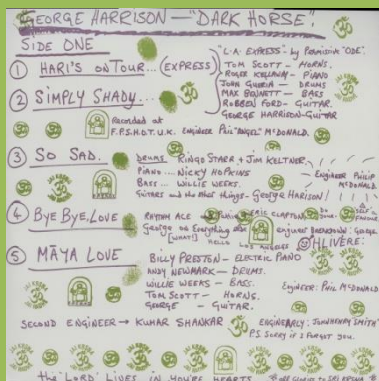 GEORGE HARRISON — "DARK HORSE".
SIDE ONE
① HARI'S ON TOUR... (EXPRESS)
"L.A. EXPRESS" by Permission "ODE".
TOM SCOTT - HORNS.
ROGER KELLAWAY - PIANO
JOHN GUERIN - DRUMS
MAX BENNETT - BASS
ROBBEN FORD - GUITAR.
GEORGE HARRISON - GUITAR
② SIMPLY SHADY...
Recorded at
F.P.S.H.O.T. U.K. Engineer Phil "ANGEL" McDONALD.
③ SO SAD.
DRUMS RINGO STARR + JIM KELTNER
PIANO... NICKY HOPKINS
BASS... WILLIE WEEKS.
GUITARS and the other things - GEORGE HARISON!
Engineer PHILIP McDONALD.
④ BYE BYE, LOVE
RHYTHM ACE
ERIC CLAPTON
George on Everything else
[WHAT!] HELLO LOS ANGELES
OHLIVERE:
⑤ MĀYA LOVE
BILLY PRESTON - ELECTRIC PIANO
ANDY NEWMARK - DRUMS.
WILLIE WEEKS - BASS.
TOM SCOTT - HORNS.
GEORGE - GUITAR.
Engineer: PHIL McDONALD
SECOND ENGINEER → KUMAR SHANKAR
ENGINEARLY: JOHN HENRY SMITH
P.S. SORRY if I FORGOT you.
the 'LORD' LIVES IN YOU'RE HEARTS
ALL GLORIES TO SRI KRSNA